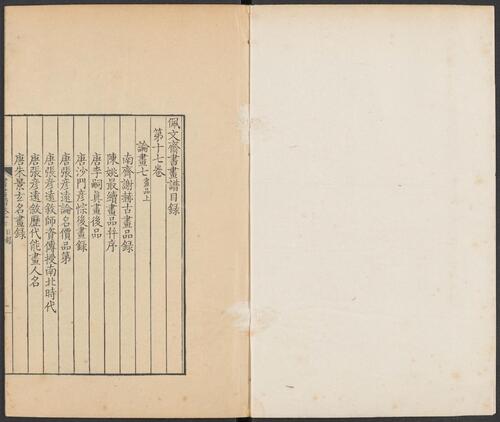 佩文齋書畫譜目録
第十七卷
論畫七 畫品上
南齊謝赫古畫品錄
陳姚最續畫品幷序
唐李嗣真畫後品
唐沙門彦悰後畫錄
唐張彦遠論名價品第
唐張彦遠敘師資傳授南北時代
唐張彦遠敘歷代能畫人名
唐朱景玄名畫錄